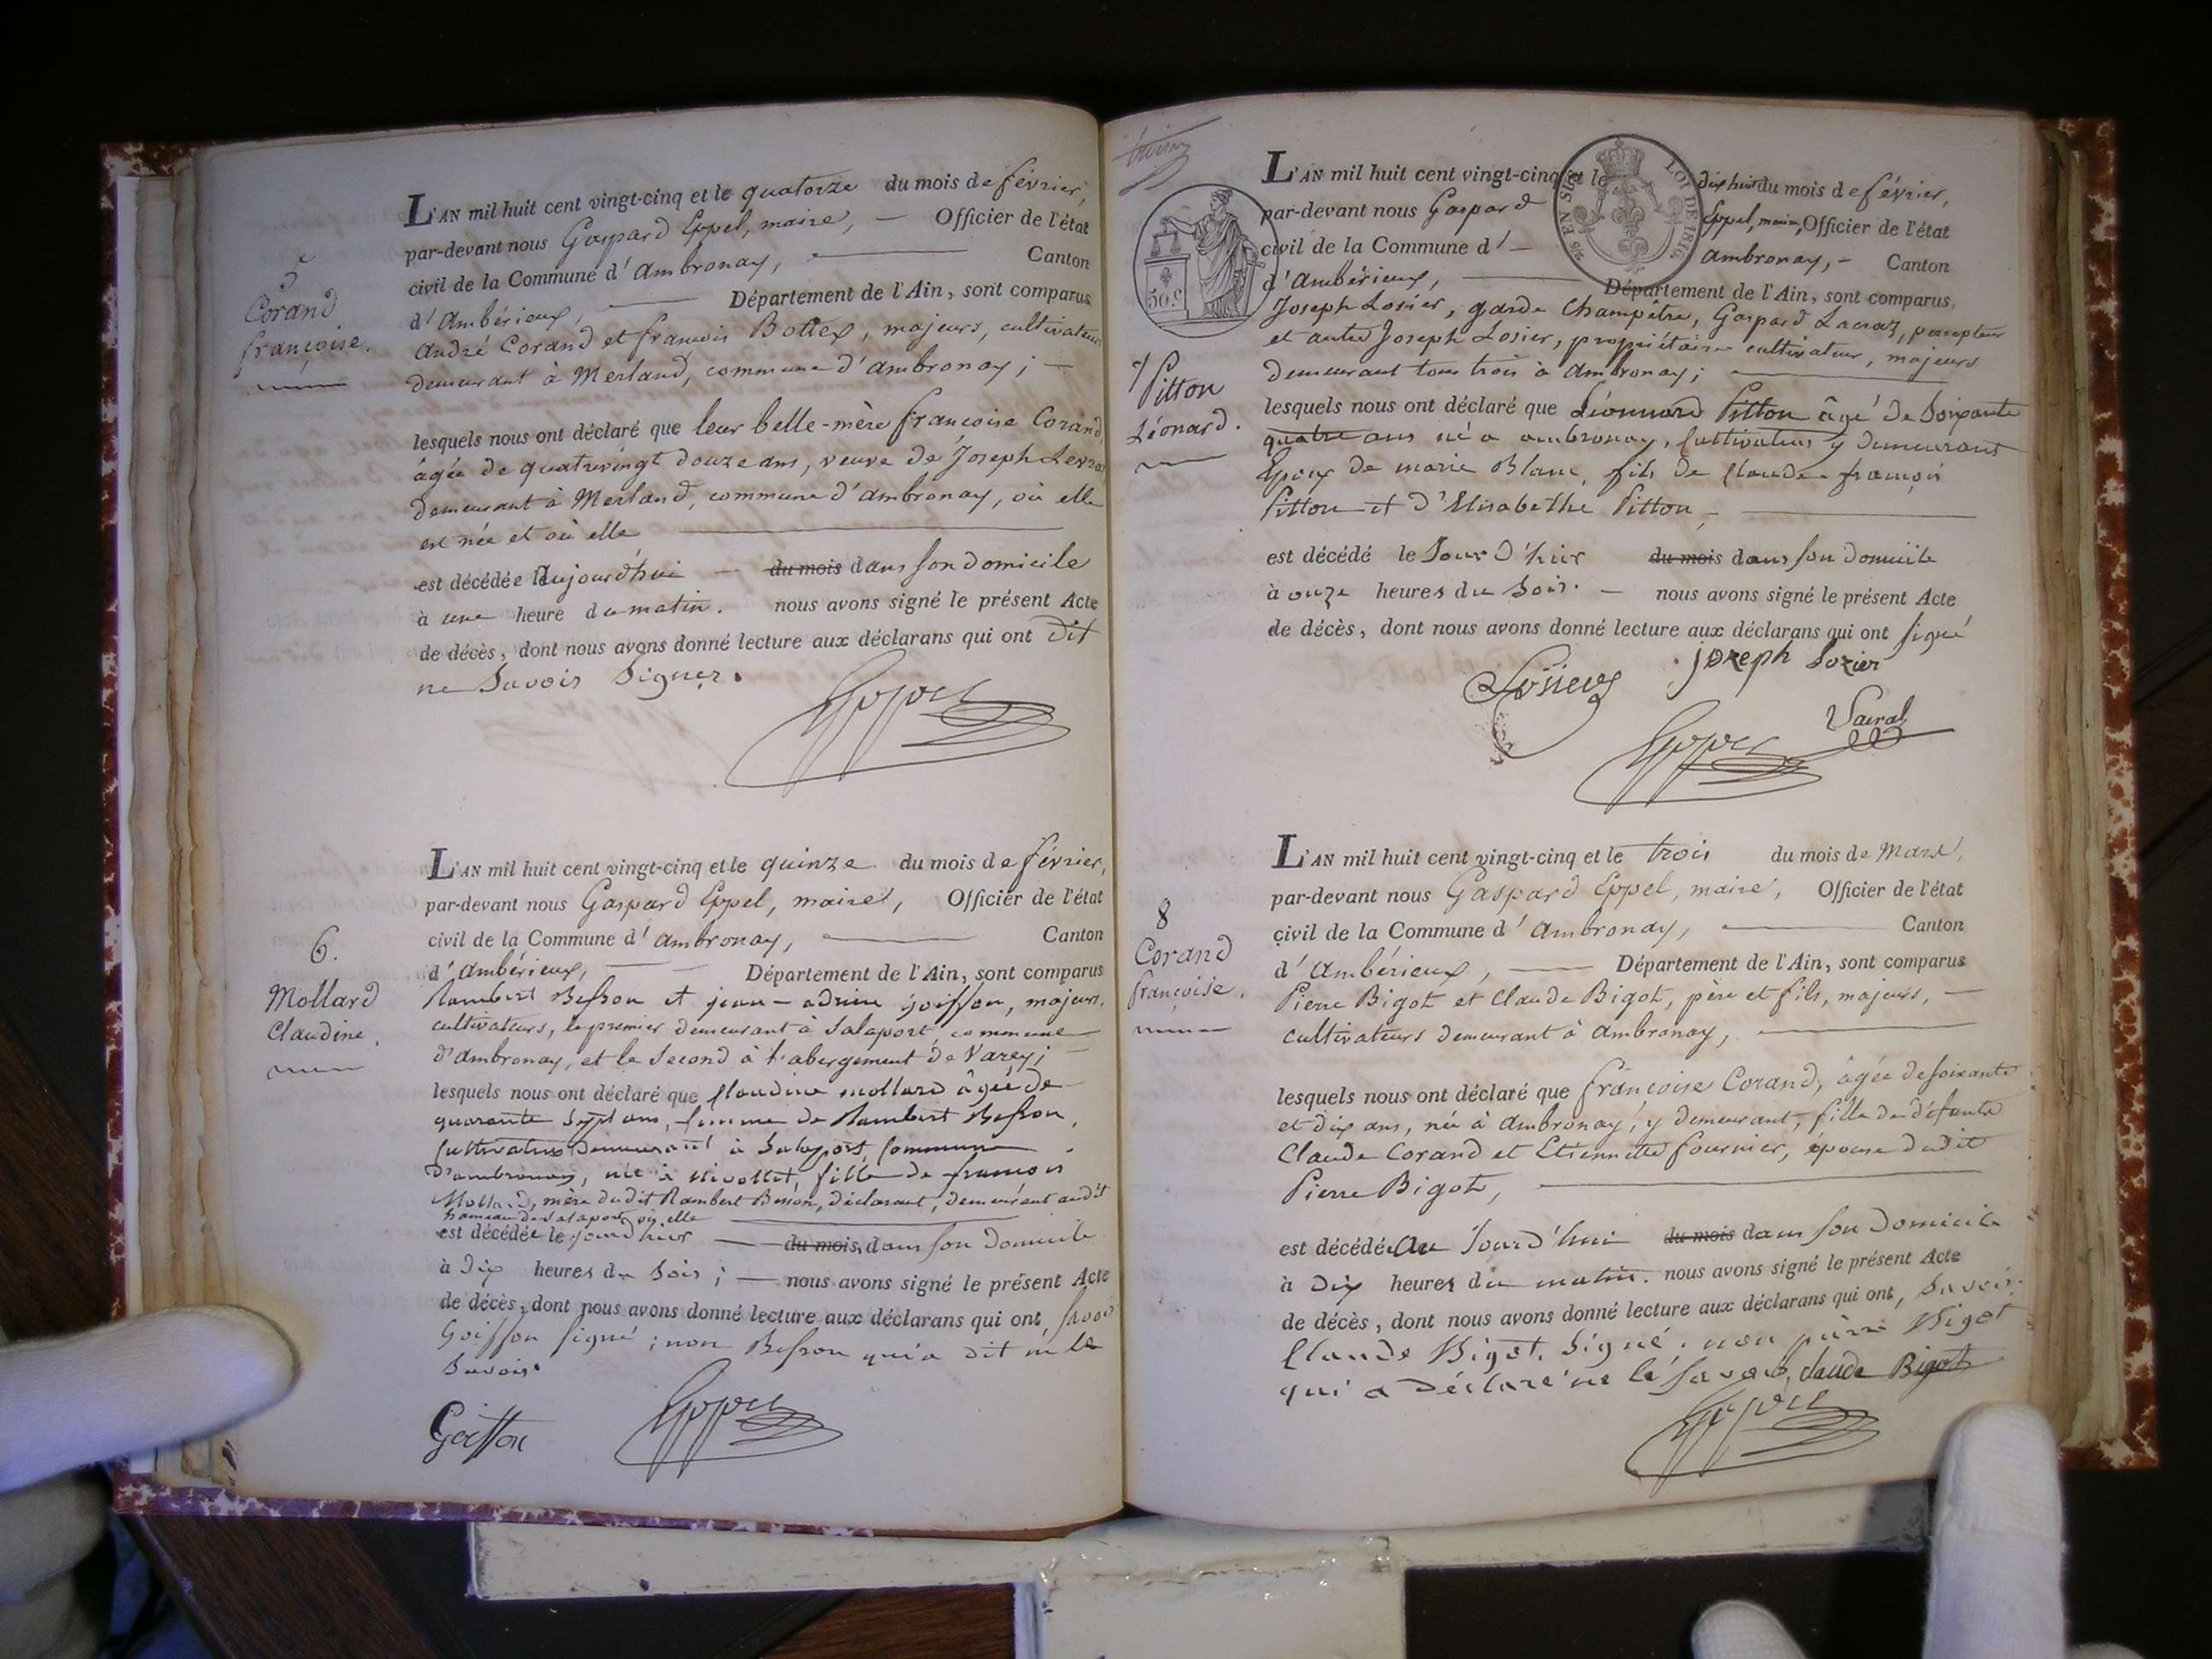 5
Corand
françoise.
L'AN mil huit cent vingt-cinq et le quatorze du mois de février,
par-devant nous Gaspard Eppel, maire, — Officier de l'état
civil de la Commune d'ambronay, — Canton
d'Ambérieux, — Département de l'Ain, sont comparus
andré Corand et francois Bottex, majeurs, cultivateurs
demeurant à Merland, commune d'ambronay; —
lesquels nous ont déclaré que leur belle-mère françoise Corand,
âgée de quatrevingt douze ans, veuve de Joseph
demeurant à Merland, commune d'ambronay, où elle
est née et où elle —
est décédée aujourd'hui — du mois dans son domicile
à une heure du matin. nous avons signé le présent Acte
de décès, dont nous avons donné lecture aux déclarans qui ont dit
ne Savoir Signer.
Eppel
6.
Mollard
Claudine.
L'AN mil huit cent vingt-cinq et le quinze du mois de février,
par-devant nous Gaspard Eppel, maire, Officier de l'état
civil de la Commune d'ambronay, — Canton
d'Ambérieux, — Département de l'Ain, sont comparus
Rambert Besson et jean-adrien goiffon, majeurs,
cultivateurs, le premier demeurant à Salaport, commune
d'ambronay, et le Second à l'abergement de Varey; —
lesquels nous ont déclaré que Claudine mollard âgée de
quarante Sept ans, femme de Rambert Besson,
Cultivateur Demeurant à Salaport, Commune
D'ambronay, née à Nivollet, fille de francois
Mollard, mère dudit Rambert Besson, déclarant, demeurant audit
hameau de Salaport, où elle —
est décédée le jour d'hier — du mois dans son Domicile
à Dix heures du Soir; — nous avons signé le présent Acte
de décès, dont nous avons donné lecture aux déclarans qui ont, savoir
Goiffon signé; non Besson qui a dit ne le
Savoir.
Goiffon Eppel
50 c
LOI DE 1816
7
Pitton
Léonard.
L'AN mil huit cent vingt-cinq et le dix huit du mois de février,
par-devant nous Gaspard Eppel, maire, Officier de l'état
civil de la Commune d'— ambronay, — Canton
d'Ambérieux, — Département de l'Ain, sont comparus,
Joseph Losier, garde Champêtre, Gaspard Lacraz, percepteur
et autre Joseph Losier, propriétaire cultivateur, majeurs
demeurant tous trois à Ambronay; —
lesquels nous ont déclaré que Léonnard Pitton âgé de Soixante
quatre ans né a ambronay, Cultivateur y demeurant
Epoux de marie Blanc, fils de Claude-françois
Pitton et d'Elisabethe Pitton, —
est décédé le Jour d'hier du mois dans son Domicile
à onze heures du Soir. — nous avons signé le présent Acte
de décès, dont nous avons donné lecture aux déclarans qui ont signé
joseph Lozier
Eppel
8
Corand
françoise.
L'AN mil huit cent vingt-cinq et le trois du mois de Mars,
par-devant nous Gaspard Eppel, maire, Officier de l'état
civil de la Commune d'ambronay, — Canton
d'Ambérieux, — Département de l'Ain, sont comparus
Pierre Bigot et Claude Bigot, père et fils, majeurs, —
cultivateurs demeurant à ambronay, —
lesquels nous ont déclaré que françoise Corand, âgée de soixante
et dix ans, née à ambronay, y demeurant, fille de défunts
Claude Corand et Etiennette fournier, épouse dudit
Pierre Bigot, —
est décédée au Jourd'hui du mois dans son Domicile
à Dix heures du matin. nous avons signé le présent Acte
de décès, dont nous avons donné lecture aux déclarans qui ont, Savoir:
Claude Bigot. Signé; non pierre Bigot
qui a Déclaré ne le Savoir. claude Bigot
Eppel